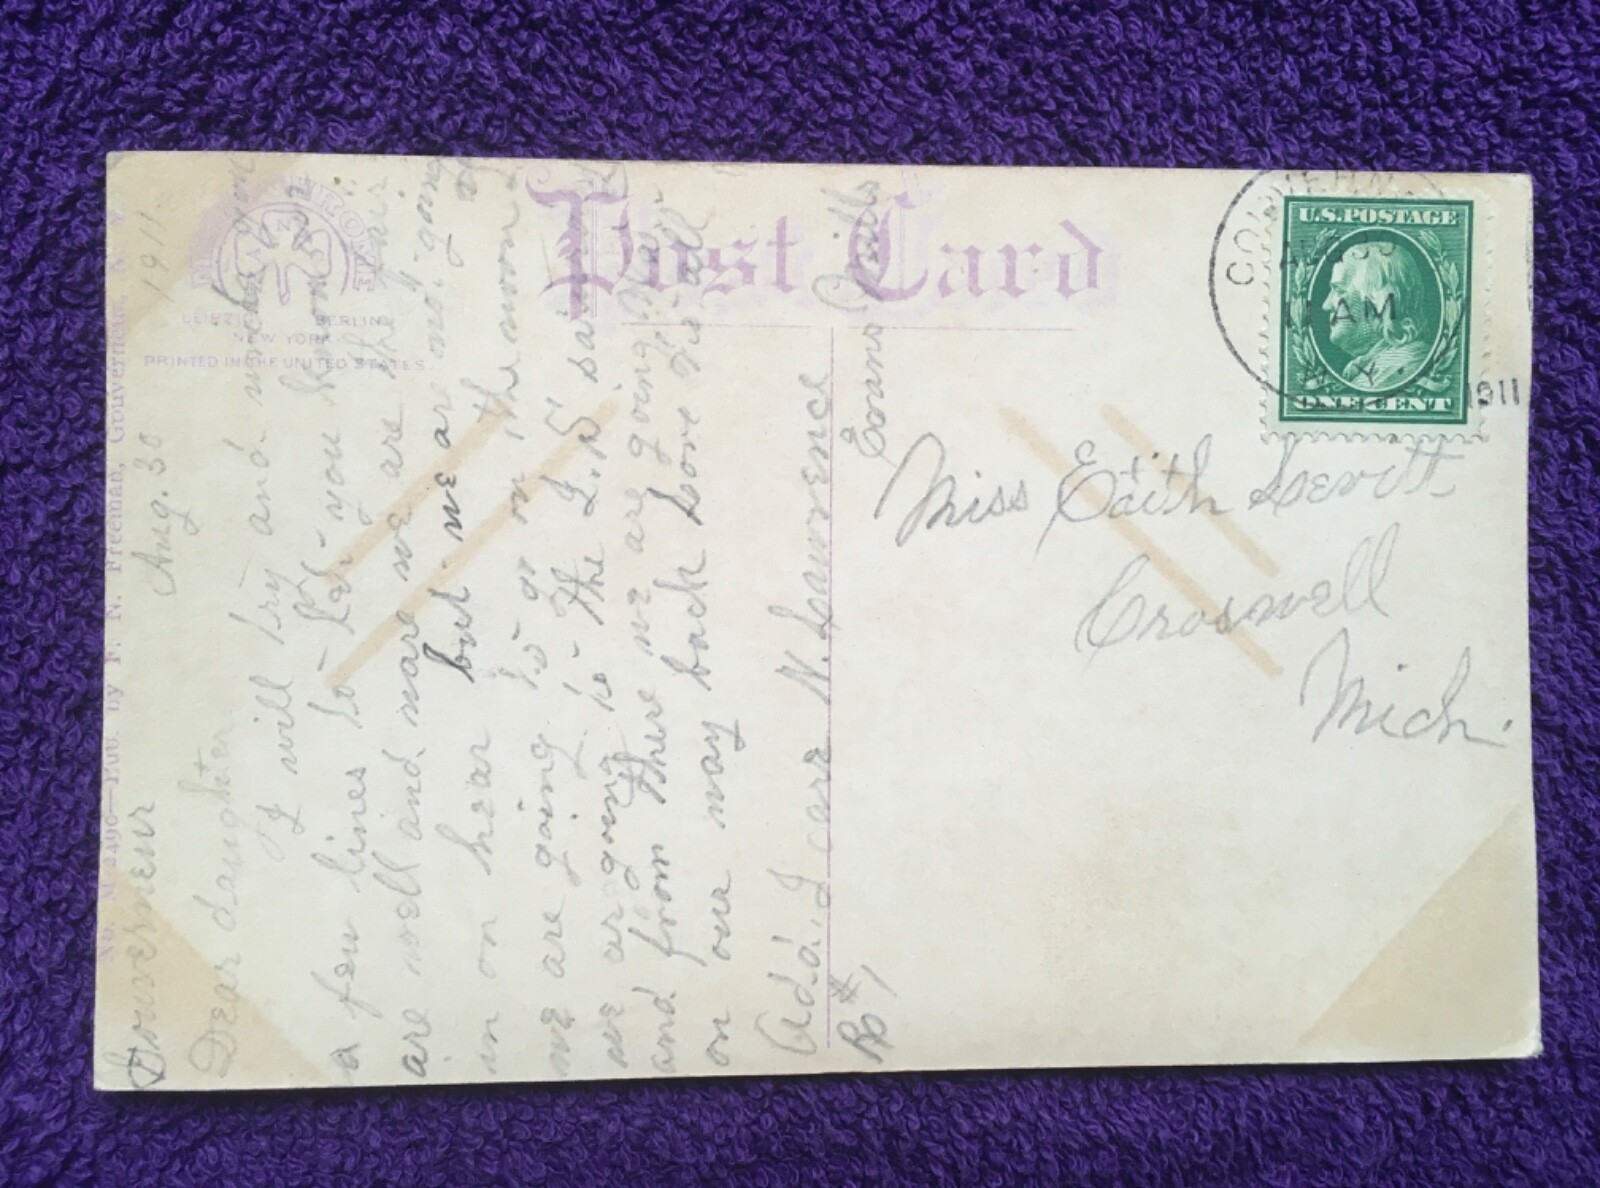 Post Card
LEIPZIG BERLIN
NEW YORK
PRINTED IN THE UNITED STATES.
No. M 2496—Pub. by F. N. Freeman, Gouverneur, N. Y.
Gouverneur Aug. 30 1911
Dear daughter
I will try and write you
a few lines to let you know we
are well and
in on hear but we are not going
we are going to go on the
we ar going to the
and from there we are going
on our way back love to all
Add, I care N. Lawrence
Ro #1 Evans Mills
Miss Edith Levitt
Croswell
Mich.
U.S. POSTAGE
ONE CENT
AUG 30
11 AM
N.Y.
1911